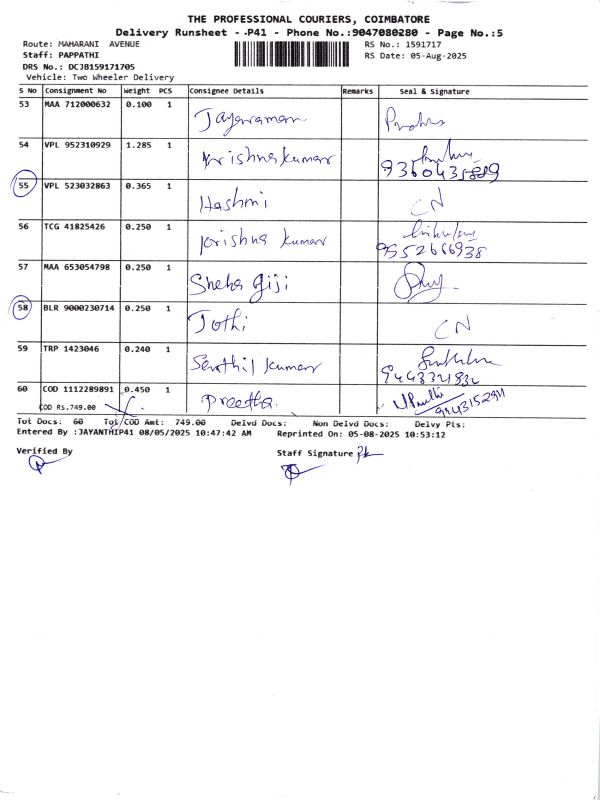 THE PROFESSIONAL COURIERS, COIMBATORE
Delivery Runsheet - .P41 - Phone No.:9047080280 - Page No.:5
Route: MAHARANI AVENUE
RS No.: 1591717
Staff: PAPPATHI
RS Date: 05-Aug-2025
DRS No.: DCJB159171705
Vehicle: Two Wheeler Delivery
S No Consignment No Weight PCS Consignee Details Remarks Seal & Signature
53 MAA 712000632 0.100 1 Jayaraman
54 VPL 952310929 1.285 1 Krishnakumar
55 VPL 523032863 0.365 1 Hashmi CN
56 TCG 41825426 0.250 1 Krishna kumar 9552666938
57 MAA 653054798 0.250 1 Sneha Giji
58 BLR 9000230714 0.250 1 Jothi CN
59 TRP 1423046 0.240 1 Senthil kumar
60 COD 1112289891 0.450 1 Preetha
COD RS.749.00
Tot Docs: 60 Tot/COD Amt: 749.00 Delvd Docs: Non Delvd Docs: Delvy Pts:
Entered By :JAYANTHIP41 08/05/2025 10:47:42 AM Reprinted On: 05-08-2025 10:53:12
Verified By
Staff Signature